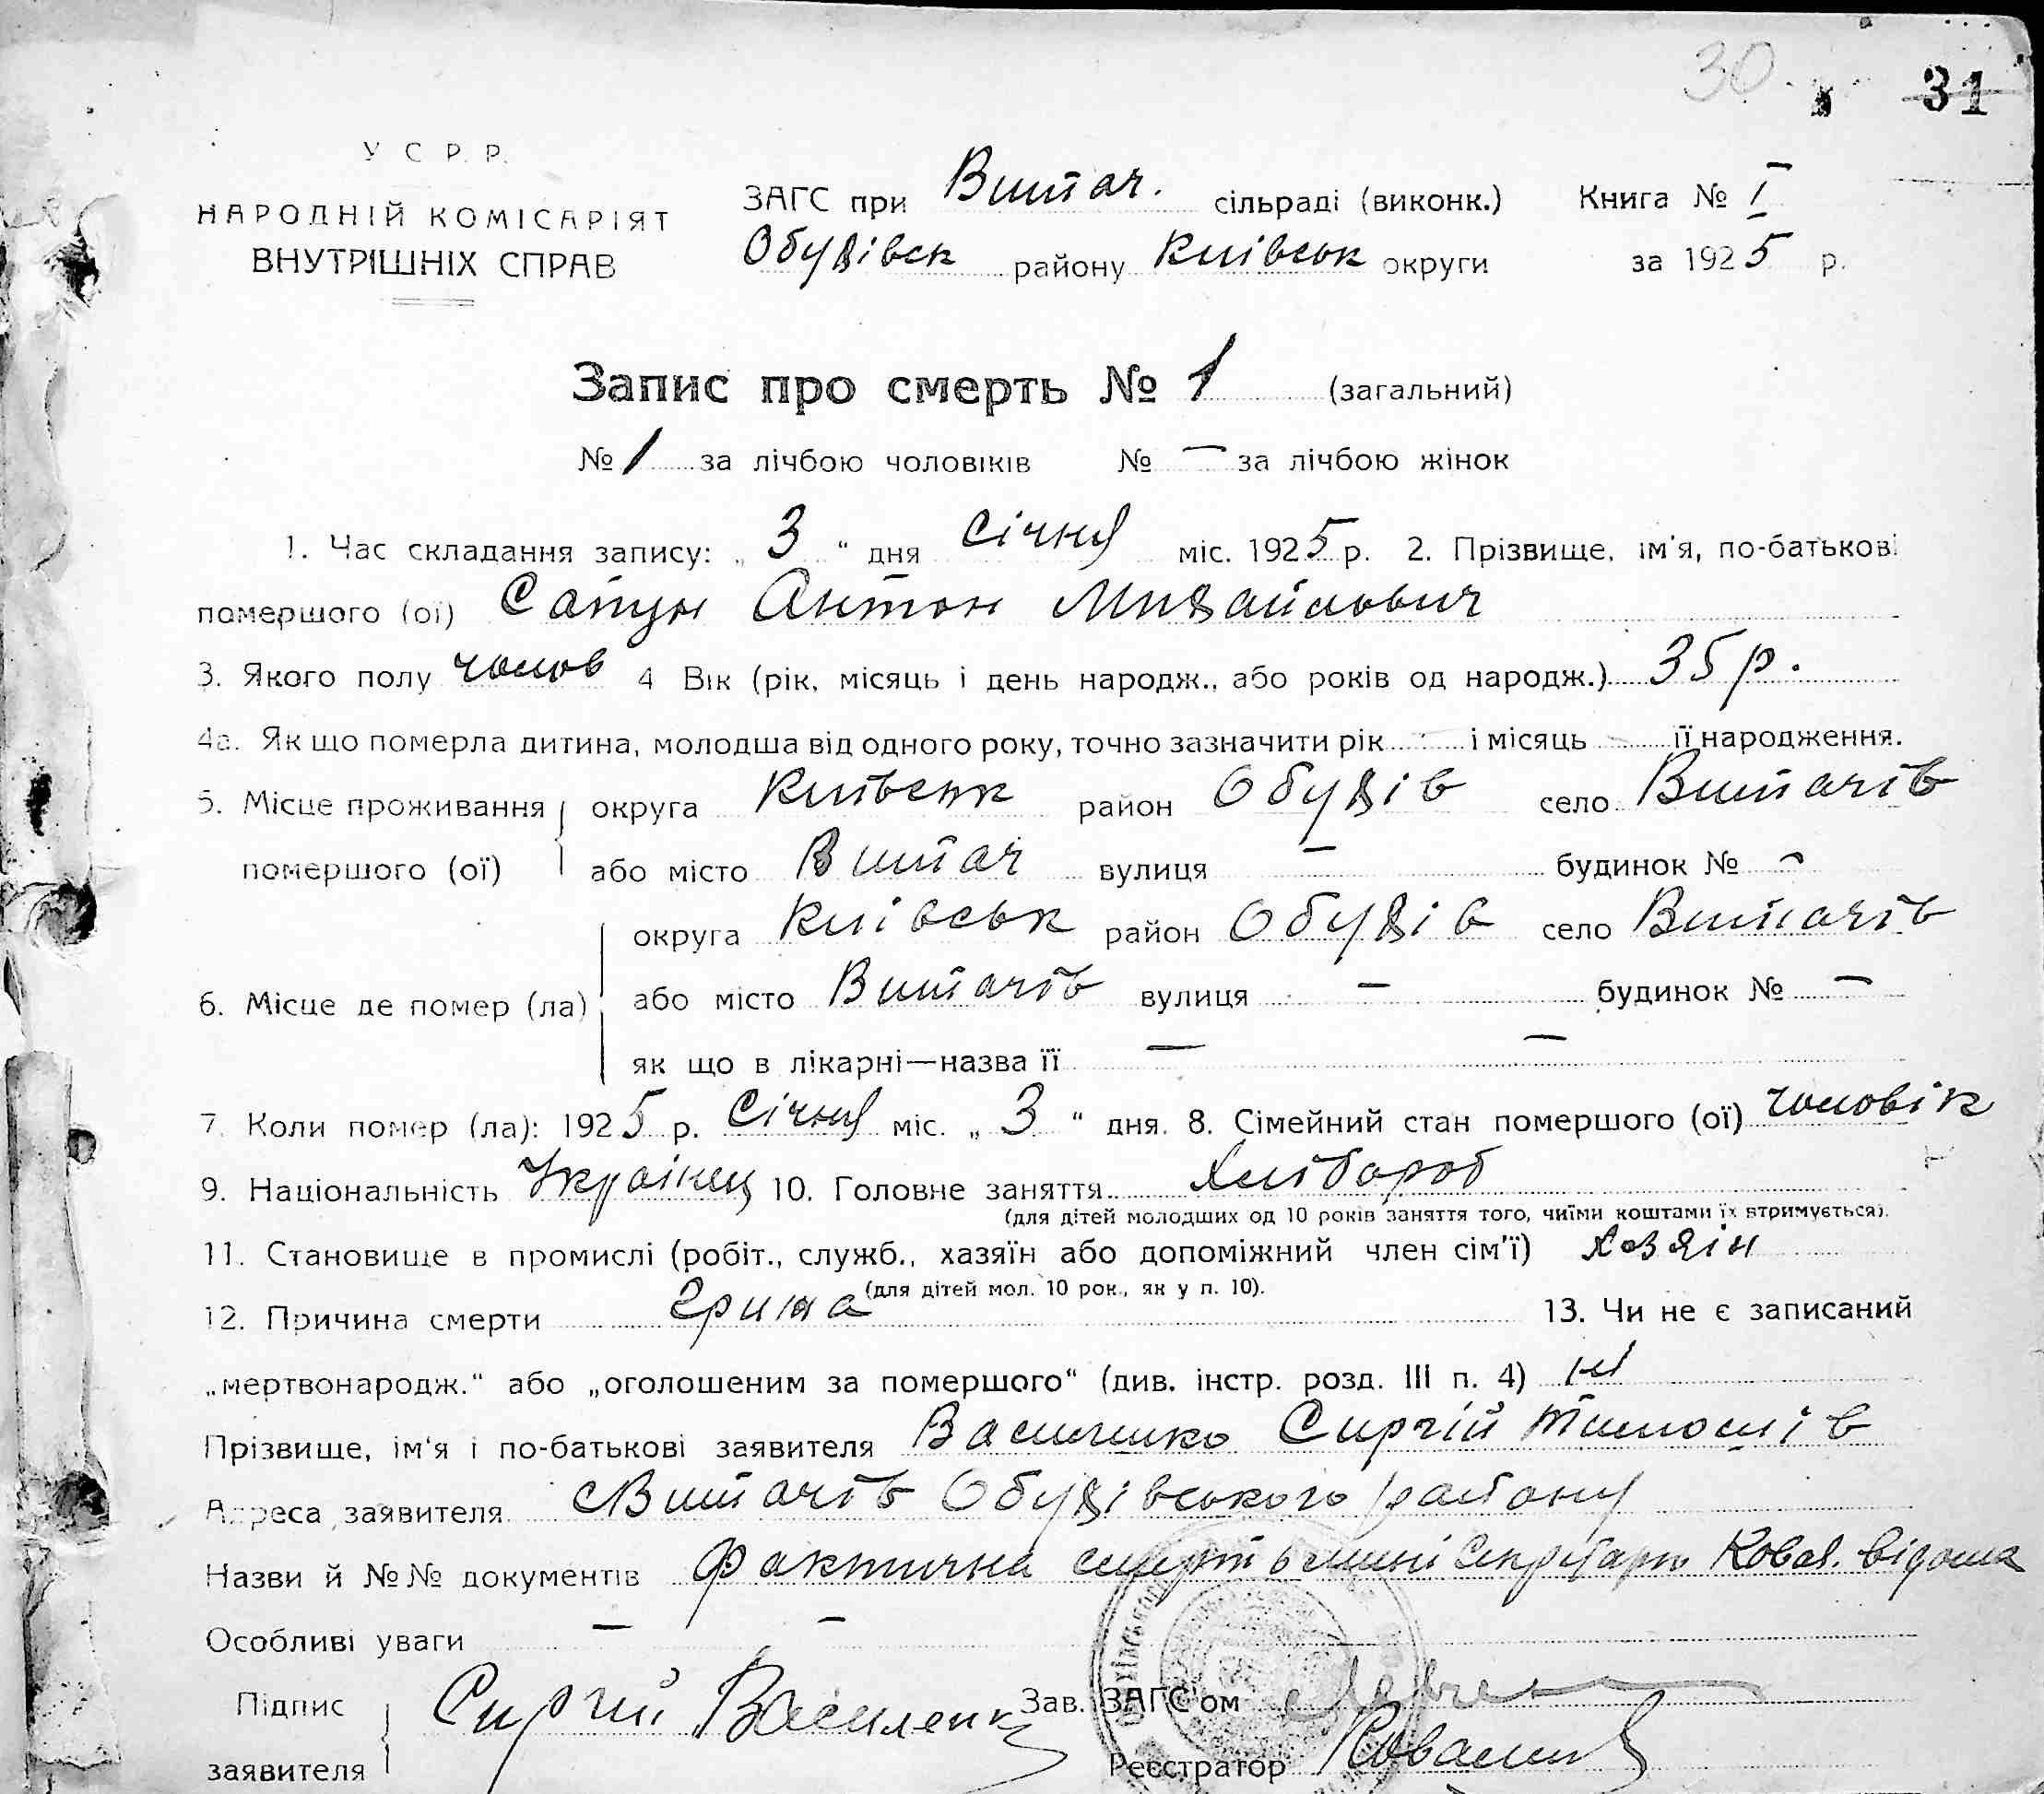 30 31
У С Р. Р.
НАРОДНІЙ КОМІСАРІЯТ
ВНУТРІШНІХ СПРАВ
ЗАГС при Витач. сільраді (виконк.) Книга № I
Обухівськ району Київськ округи за 1925 р.
Запис про смерть № 1 (загальний)
№ 1 за лічбою чоловіків № — за лічбою жінок
1. Час складання запису: „ 3 “ дня Січня міс. 1925 р. 2. Прізвище, ім'я, по-батькові
помершого (ої) Сапун Антон Михайлович
3. Якого полу чолов 4 Вік (рік, місяць і день народж., або років од народж.) 35 р.
4а. Як що померла дитина, молодша від одного року, точно зазначити рік і місяць її народження.
5. Місце проживання округа Київськ район Обухів село Витачів
помершого (ої) або місто Витач вулиця — будинок № —
округа Київськ район Обухів село Витачів
6. Місце де помер (ла) або місто Витачів вулиця — будинок № —
як що в лікарні—назва її — —
7. Коли помер (ла): 1925 р. Січня міс. „ 3 “ дня. 8. Сімейний стан помершого (ої) чоловік
9. Національність Українець 10. Головне заняття Хлібороб
(для дітей молодших од 10 років заняття того, чиїми коштами їх втримується).
11. Становище в промислі (робіт., служб., хазяїн або допоміжний член сім'ї) хазяін
(для дітей мол. 10 рок., як у п. 10).
12. Причина смерти 13. Чи не є записаний
„мертвонародж.“ або „оголошеним за помершого“ (див. інстр. розд. III п. 4) ні
Прізвище, ім'я і по-батькові заявителя Василенко Сиргій
Адреса заявителя Витачів Обухівського району
Назви й №№ документів Фактична смерть мині Секрітарю Ковал. відома
Особливі уваги — —
Підпис Сиргій Василенко Зав. ЗАГС'ом
заявителя Реєстратор